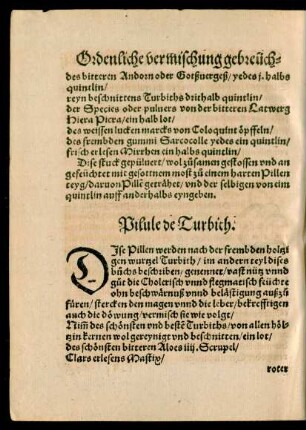 Ordenliche vermischung gebreüch⸗
des bitteren Andorn oder Gotßuergeß / yedes j. halbs
quintlin /
reyn beschnittens Turbiths drithalb quintlin /
der Species oder puluers von der bitteren Latwerg
Hiera Picra / ein halb lot /
des weissen lucken marcks von Coloquint öpffeln /
des frembden gummi Sarcocolle yedes ein quintlin /
frisch erlesen Mirrhen ein halbs quintlin /
Dise stuck gepüluert / wol zůsamen gestossen vnd an
gefeüchtet mit gesottnem most zů einem harten Pillen
teyg / daruon Pillē geträhet / vnd der selbigen von eim
quintlin auff anderhalbs eyngeben.
Pilule de Turbith.
DIse Pillen werden nach der frembden holtzi
gen wurtzel Turbith / im andern teyl dises
bůchs beschriben / genennet / vast nütz vnnd
gůt die Cholerisch vnnd flegmatisch feüchte
ohn beschwärnuß vnnd belästigung außzů
füren / stercken den magen vnnd die leber / bekrefftigen
auch die döwung / vermisch sie wie volgt /
Niſſ des schönsten vnd bestē Turbiths / von allen höl⸗
tzin kernen wol gereynigt vnd beschnitten / ein lot /
des schönsten bitteren Aloes iiij. Scrupel /
Clars erlesens Mastix /
roter